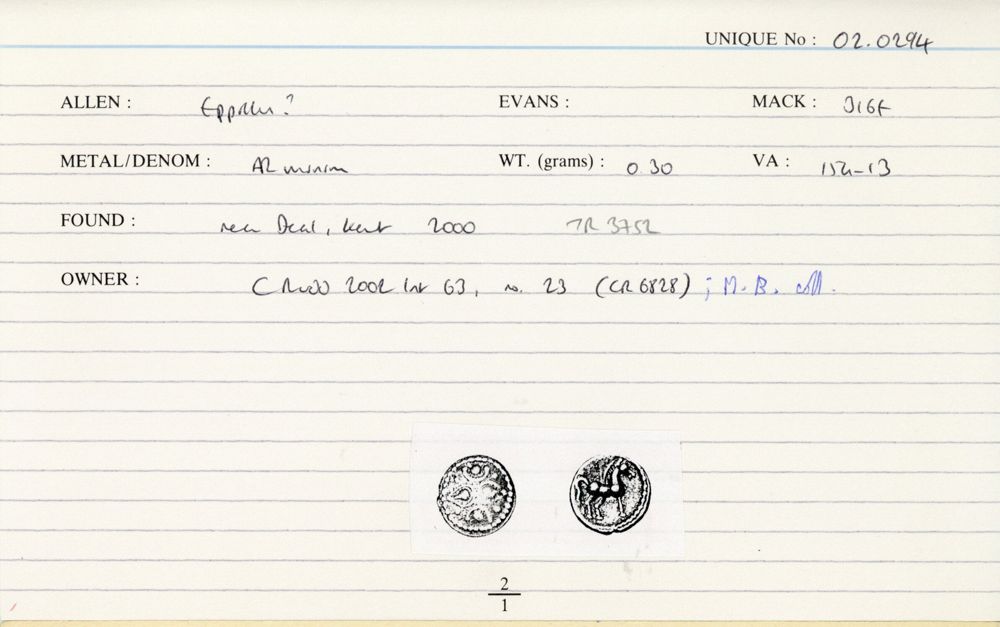 UNIQUE No : 02.0294
ALLEN : Eppillus? EVANS : MACK : 316f
METAL/DENOM : AR minim WT. (grams) : 0.30 VA : 154-13
FOUND : near Deal, Kent 2000 TR 3752
OWNER : C Rudd 2002 list 63, no. 23 (CR6828) ; M. B. coll.
2
1